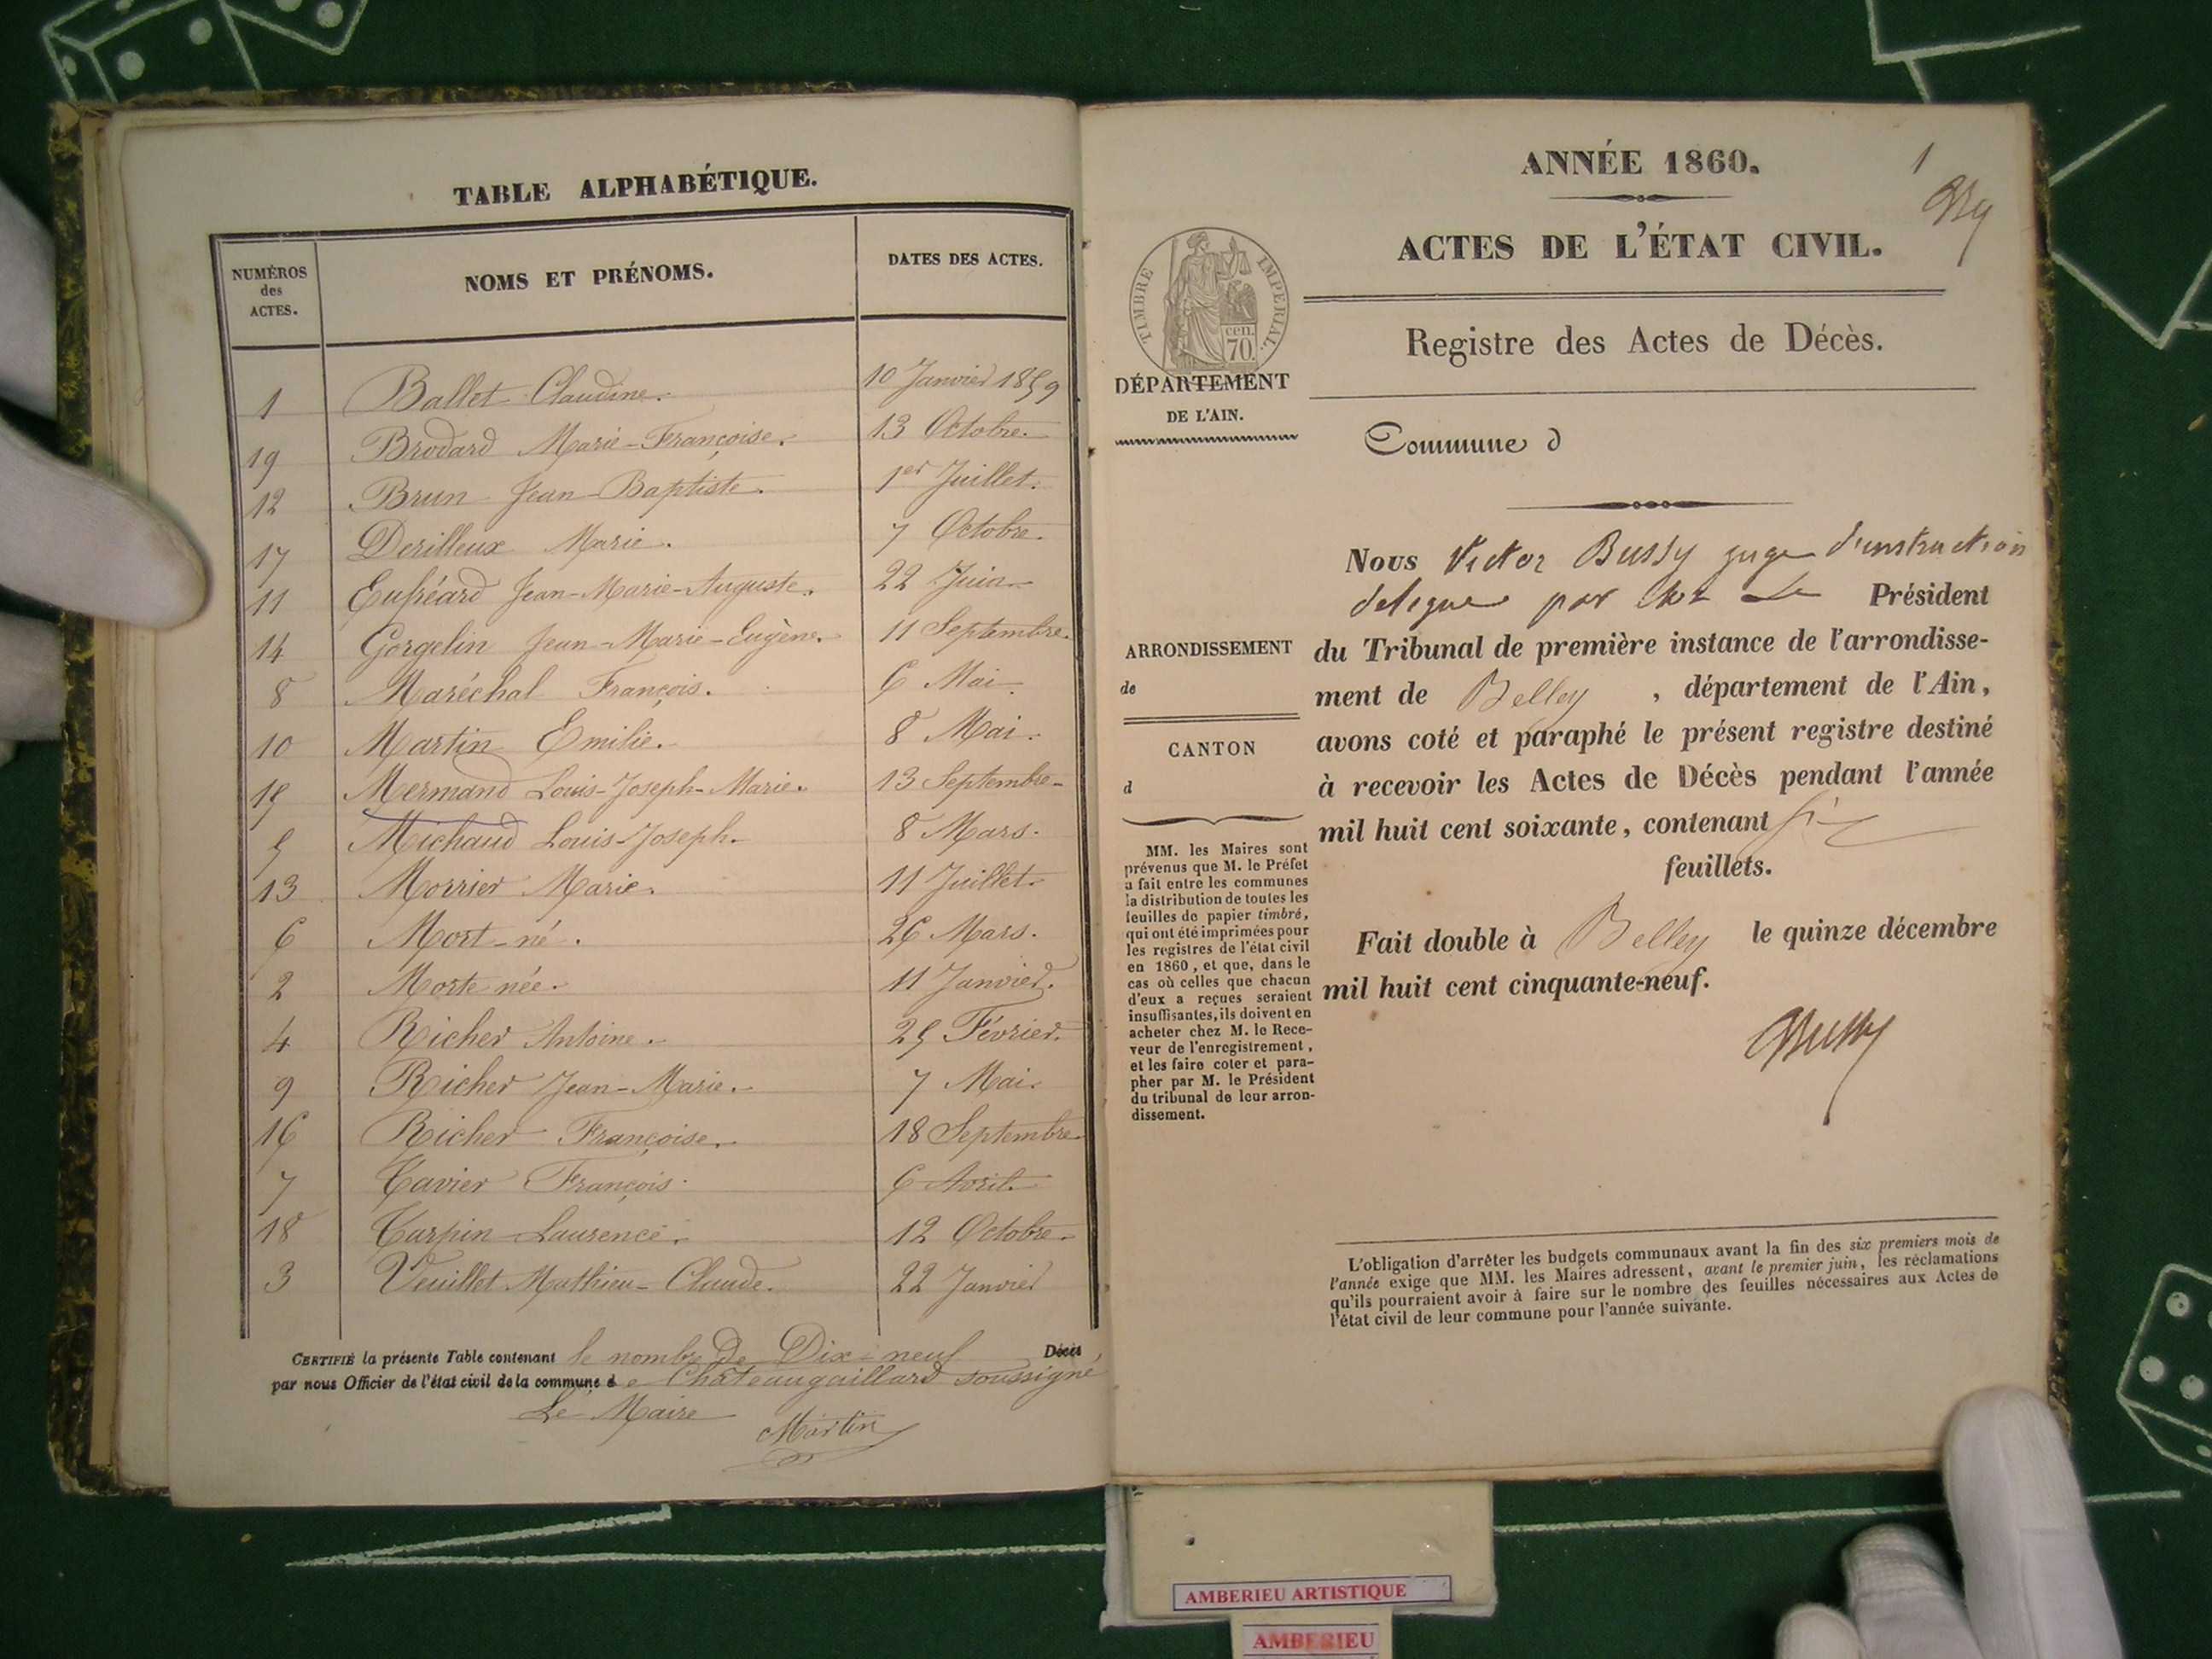 TABLE ALPHABÉTIQUE.
NUMÉROS
des
ACTES.
NOMS ET PRÉNOMS.
DATES DES ACTES.
1 Ballet Claudine. 10 Janvier 1859
19 Brodard Marie-Françoise. 13 Octobre.
12 Brun Jean Baptiste. 1er Juillet.
17 Derilleux Marie. 7 Octobre.
11 Jean-Marie-Auguste. 22 Juin
14 Gorgelin Jean-Marie-Eugène. 11 Septembre.
8 Maréchal François. 6 Mai.
10 Martin Emilie. 8 Mai.
15 Mermand Louis-Joseph-Marie. 13 Septembre
5 Michaud Louis-Joseph. 8 Mars.
13 Morrier Marie. 11 Juillet.
6 Mort-né. 26 Mars.
2 Morte née. 11 Janvier.
4 Richer Antoine. 25 Février.
9 Richer Jean-Marie. 7 Mai.
16 Richer Françoise. 18 Septembre
7 Tavier François. 6 Avril.
18 Tarpin Laurence. 12 Octobre.
3 Veuillet Mathieu-Claude. 22 Janvier
CERTIFIÉ la présente Table contenant le nombre de Dix-neuf Décès
par nous Officier de l'état civil de la commune de Châteaugaillard soussigné
Le Maire
Martin
1
ANNÉE 1860.
ACTES DE L'ÉTAT CIVIL.
TIMBRE IMPÉRIAL
cen.
70.
Registre des Actes de Décès.
DÉPARTEMENT
DE L'AIN.
Commune d
Nous Victor Bussy juge d'instruction
délégué par Le Président
ARRONDISSEMENT
de
du Tribunal de première instance de l'arrondisse-
ment de Belley, département de l'Ain,
avons coté et paraphé le présent registre destiné
à recevoir les Actes de Décès pendant l'année
mil huit cent soixante, contenant six
feuillets.
CANTON
d
MM. les Maires sont
prévenus que M. le Préfet
a fait entre les communes
la distribution de toutes les
feuilles de papier timbré,
qui ont été imprimées pour
les registres de l'état civil
en 1860, et que, dans le
cas où celles que chacun
d'eux a reçues seraient
insuffisantes, ils doivent en
acheter chez M. le Rece-
veur de l'enregistrement,
et les faire coter et para-
pher par M. le Président
du tribunal de leur arron-
dissement.
Fait double à Belley le quinze décembre
mil huit cent cinquante-neuf.
Bussy
L'obligation d'arrêter les budgets communaux avant la fin des six premiers mois de
l'année exige que MM. les Maires adressent, avant le premier juin, les réclamations
qu'ils pourraient avoir à faire sur le nombre des feuilles nécessaires aux Actes de
l'état civil de leur commune pour l'année suivante.
AMBERIEU ARTISTIQUE
AMBERIEU